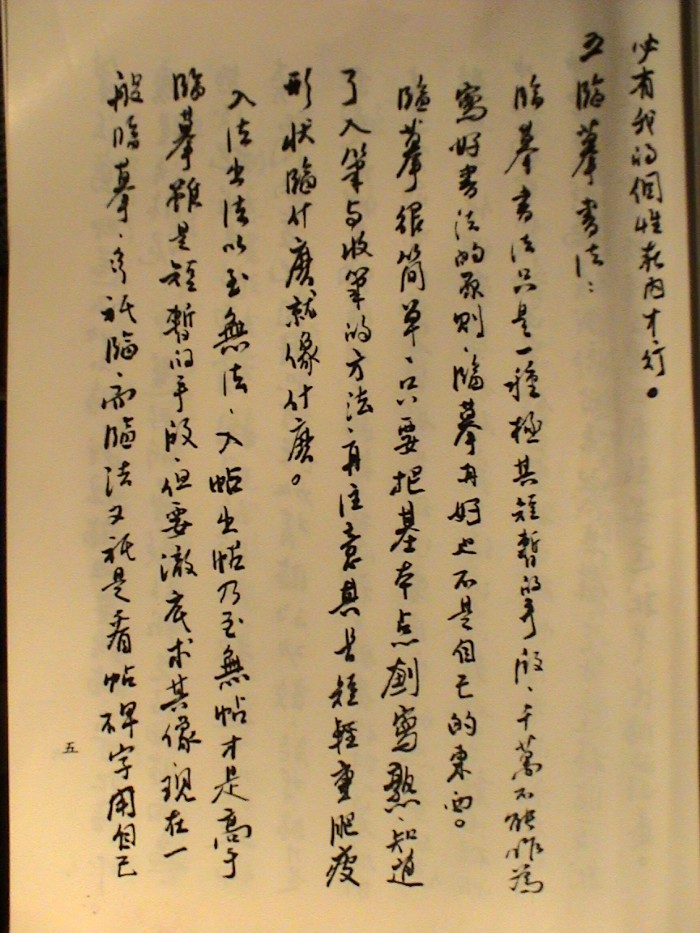 必有我的個性在内才行。
五臨摹書法:
臨摹書法只是一種極其短暫的手段、千萬不能作為
寫好書法的原則、臨摹再好也不是自己的東西。
臨摹很簡單、只要把基本点劃寫熟、知道
了入筆与收筆的方法、再注意其長短輕重肥瘦
形状臨什麽就像什麽。
入法出法以至無法、入帖出帖乃至無帖才是高手
臨摹雖是短暫的手段、但要澈底求其像現在一
般臨摹、多祇臨、而臨法又祇是看帖碑字用自己
五